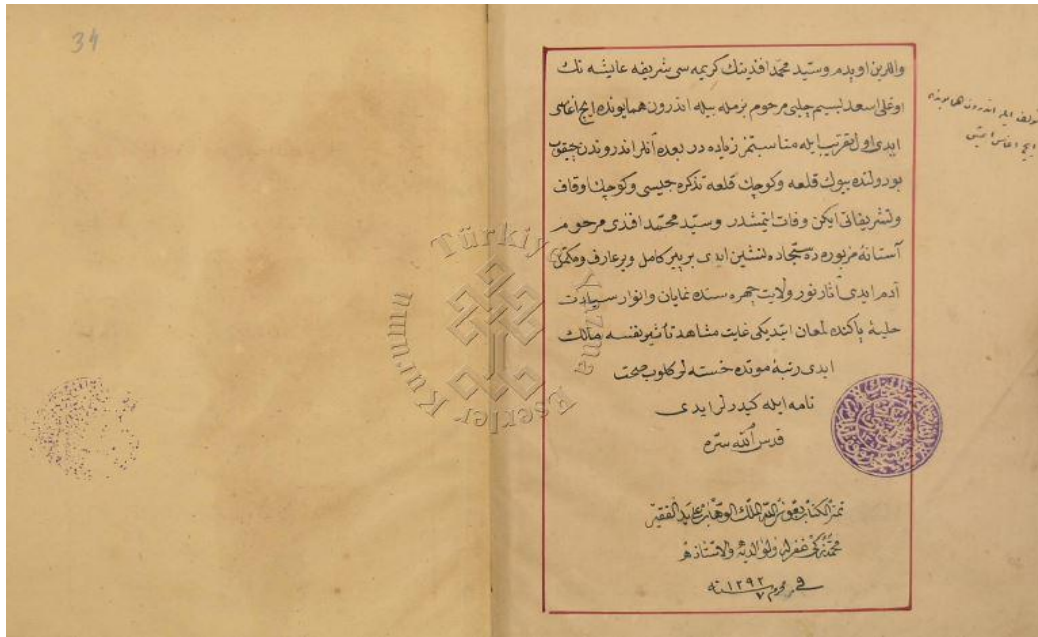 34
واللرین اوپدم وسید محمد افندینك كریمه سی شریفه عایشه نك
اوغلی اسعد بسیم چلبی مرحوم بزمله بیله اندرون همایونده ایچ اغاسی
ایدی اول تقریب ایله مناسبتمز زیاده در بعده آنلر اندروندن چیقوب
بوردلنده بیوك قلعه وكوچك قلعه تذكره جیسی وكوچك اوقاف
وتشریفاتی ایكن وفات ایتمشدر وسید محمد افندی مرحوم
آستانهٔ مزبوره ده سجاده نشین ایدی بر پیر كامل وبر عارف ومكمل
آدم ایدی آثار نور ولایت چهره سنده نمایان وانوار سیادت
حلیهٔ پاكنده لمعان ایتدیكی غایت مشاهد تأثیر نفسه مالك
ایدی رتبهٔ موتده خسته لر كلوب صحت
تامه ایله كیدرلر ایدی
قدس الله سره
ایله اندرون همایونده
ایچ اغاسی ایتمش
تمت الكتاب بعون الله الملك الوهاب عن ید الفقیر
محمد زكی غفر له ولوالدیه ولاستاذه
فی ٧ محرم سنه ١٢٩٢
Türkiye Yazma Eserler Kurumu